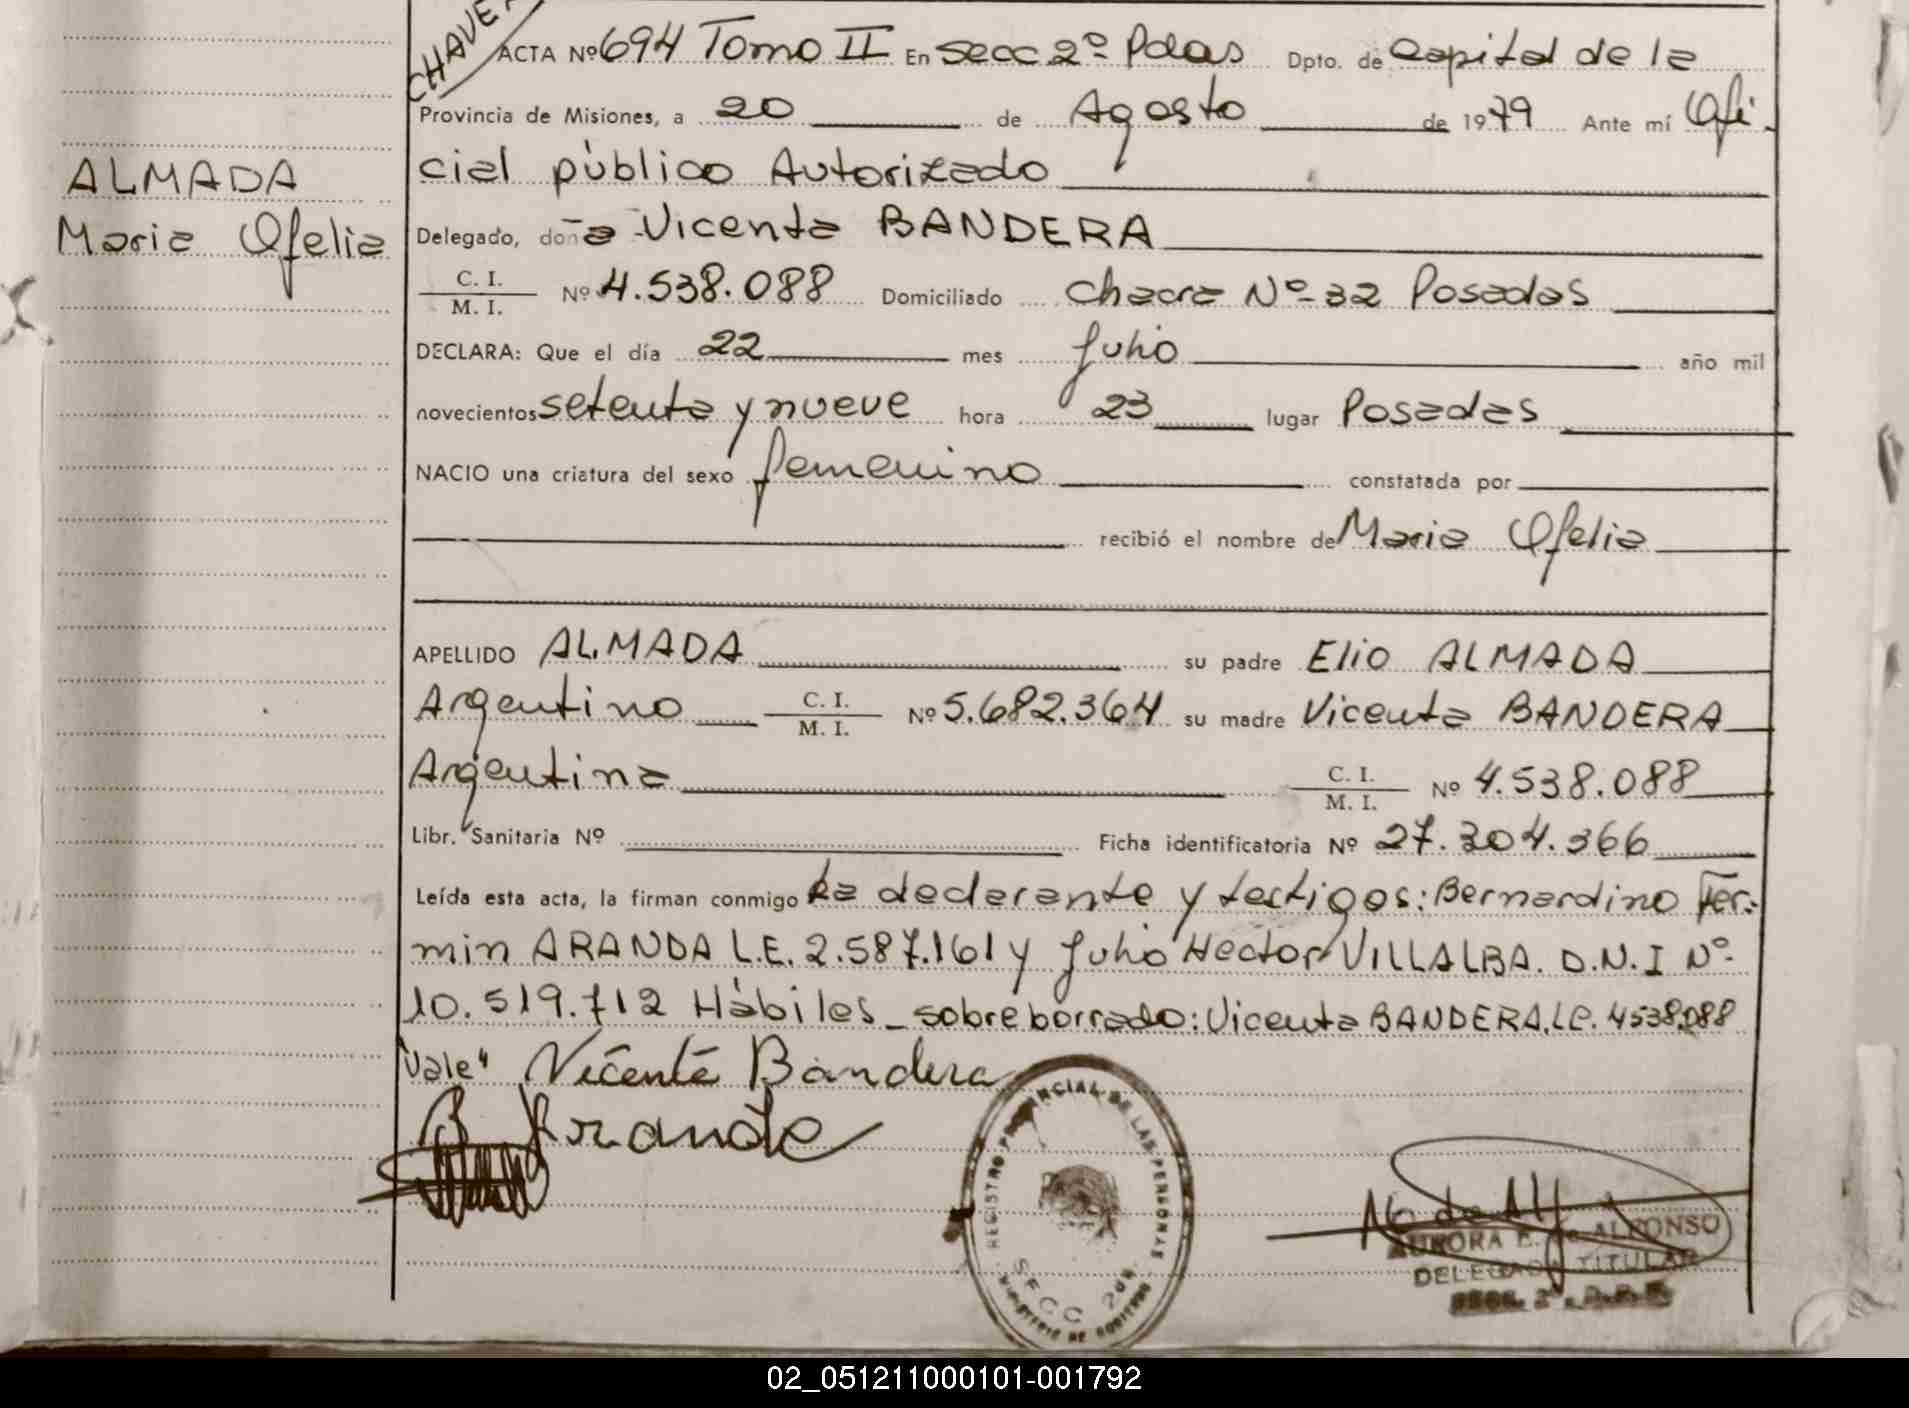 CHAVE
ACTA Nº 694 Tomo II En secc 2º Pdas Dpto. de Capital de la
Provincia de Misiones, a 20 de Agosto de 1979 Ante mí Ofi-
cial público Autorizado
ALMADA
Maria Ofelia
Delegado, doña Vicenta BANDERA
C. I.
M. I.
Nº 4.538.088 Domiciliado Chacra Nº 32 Posadas
DECLARA: Que el día 22 mes Julio año mil
novecientos setenta y nueve hora 23 lugar Posadas
NACIO una criatura del sexo femenino constatada por
recibió el nombre de Maria Ofelia
APELLIDO ALMADA su padre Elio ALMADA
Argentino C. I. M. I. Nº 5.682.364 su madre Vicenta BANDERA
Argentina C. I. M. I. Nº 4.538.088
Libr. Sanitaria Nº Ficha identificatoria Nº 27.304.366
Leída esta acta, la firman conmigo la declarante y testigos: Bernardino Fer-
min ARANDA L.E. 2.587.161 y Julio Hector VILLALBA. D.N.I Nº
10.519.712 Hàbiles_ sobreborrado: Vicenta BANDERA, L.C. 4538.088
"Vale" Vicenta Bandera
B Aranda
REGISTRO PROVINCIAL DE LAS PERSONAS
SECC 2da
AURORA E. de ALFONSO
DELEGADO TITULAR
SECC. 2ª
02_051211000101-001792